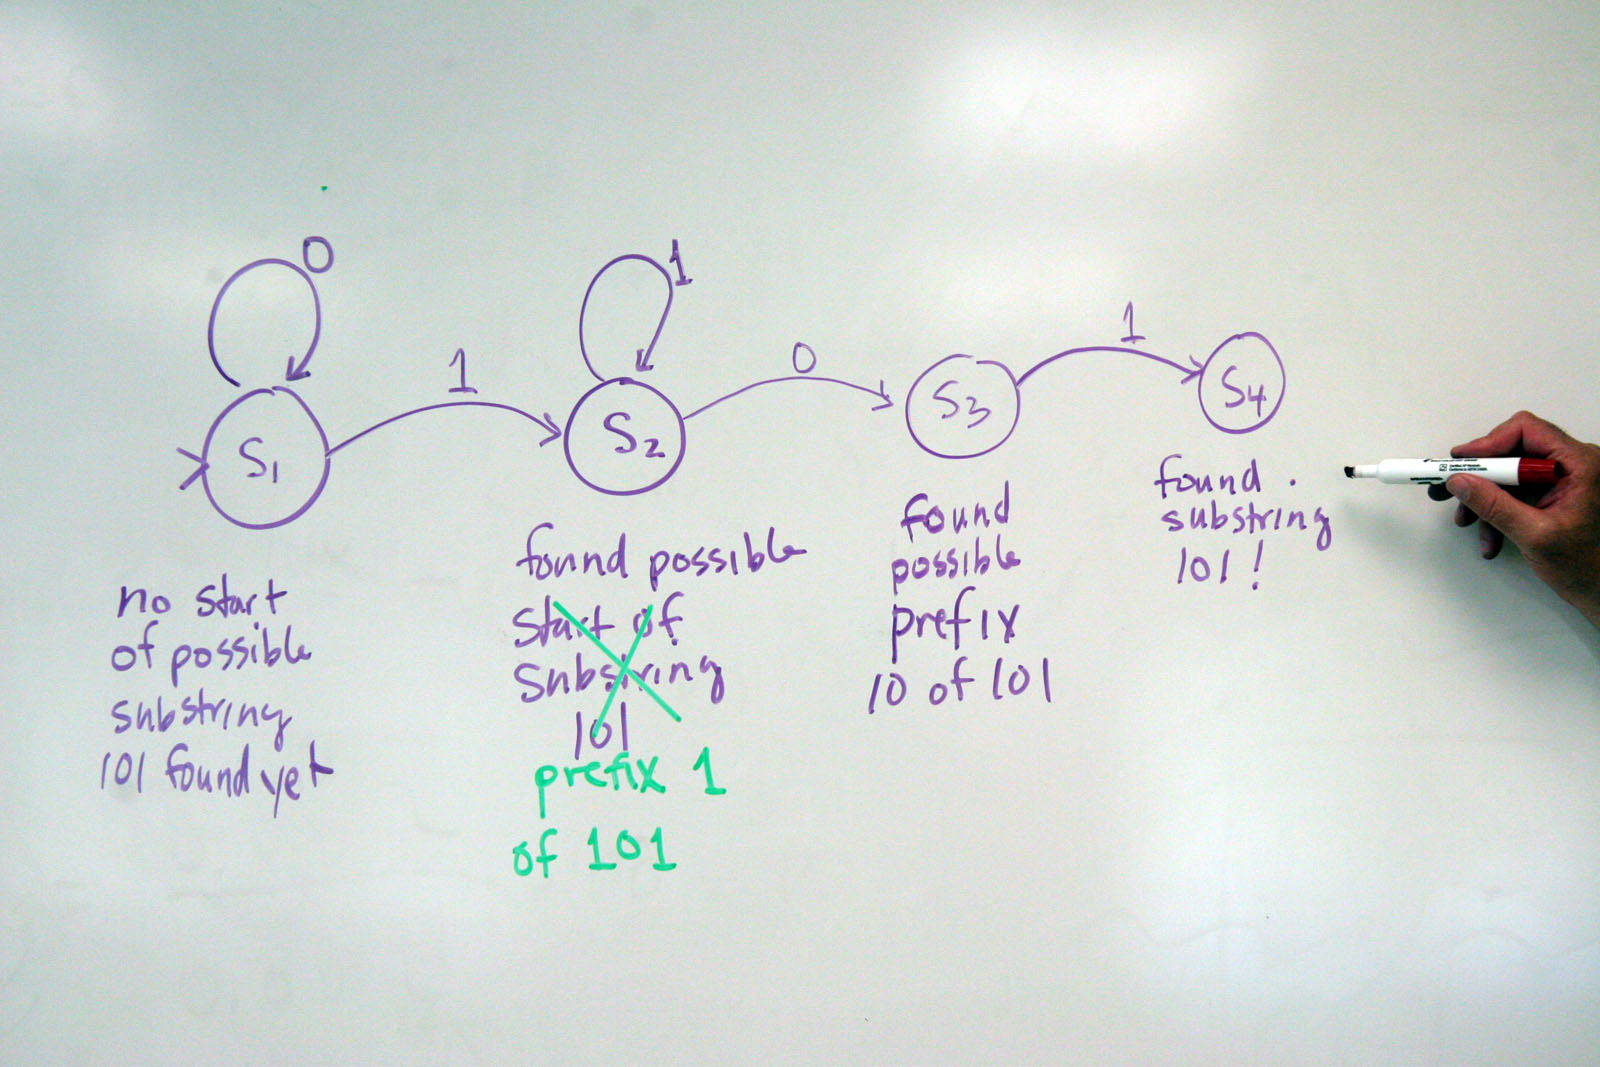 0
1
1
0
1
S1
S2
S3
S4
no start
of possible
substring
101 found yet
found possible
start of
substring
101
prefix 1
of 101
found
possible
prefix
10 of 101
found
substring
101!